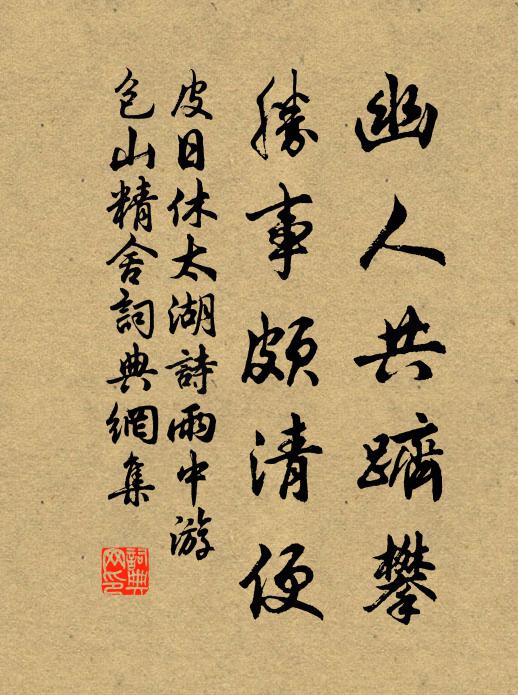 幽人共躋攀
勝事頗清便
皮日休太湖詩雨中游
包山精舍詞典網集
詞典網印